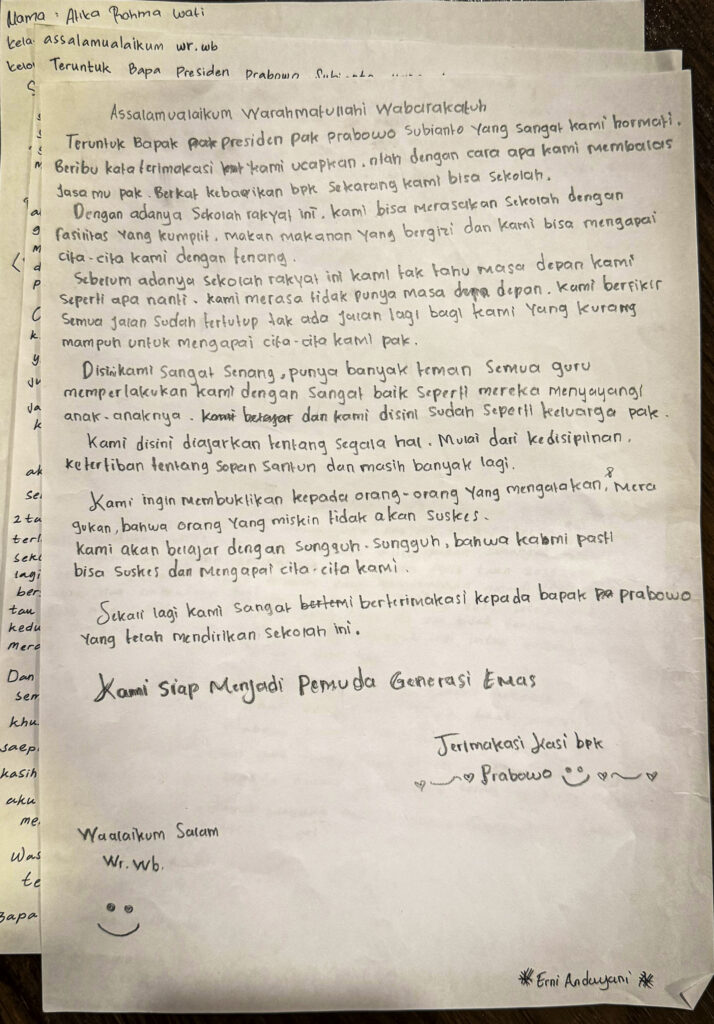 Nama : Alika Rohma wati
kela
assalamualaikum wr.wb
kelo
Teruntuk Bapa Presiden Prabowo Subianto
Assalamualaikum Warahmatullahi Wabarakatuh
Teruntuk Bapak pak presiden pak prabowo Subianto Yang sangat kami hormati.
Beribu kata terimakasi kami ucapkan. ntah dengan cara apa kami membalas
Jasa mu pak. Berkat kebaqikan bpk sekarang kami bisa sekolah.
Dengan adanya Sekolah rakyat ini, kami bisa merasakan sekolah dengan
fasilitas Yang kumplit, makan makanan yang bergizi dan kami bisa mengapai
cita-cita kami dengan tenang.
Sebelum adanya sekolah rakyat ini kami tak tahu masa depan kami
seperti apa nanti. kami merasa tidak punya masa depa depan. kami berfikir
Semua jalan sudah tertutup tak ada jalan lagi bagi kami yang kurang
mampuh untuk mengapai cita-cita kami pak.
Disini kami sangat senang, punya banyak teman semua guru
memperlakukan kami dengan sangat baik seperti mereka menyayangi
anak-anaknya. kami belajar dan kami disini sudah seperti keluarga pak.
Kami disini diajarkan tentang segala hal. Mulai dari kedisiplinan,
ketertiban tentang sopan santun dan masih banyak lagi.
Kami ingin membuktikan kepada orang-orang yang mengatakan, & mera
gukan, bahwa orang yang miskin tidak akan suskes.
Kami akan belajar dengan sungguh-sungguh, bahwa kami pasti
bisa suskes dan mengapai cita-cita kami.
Sekali lagi kami sangat bertemi berterimakasi kepada bapak pa prabowo
yang telah mendirikan sekolah ini.
Kami siap Menjadi Pemuda Generasi Emas
Terimakasi kasi bpk
Prabowo
Waalaikum Salam
Wr. Wb.
Erni Andayani
ak
se
2 ta
terl
seko
lagi
ber
tau
kedu
mera
Dan
sem
khu
saep
kasih
aku
me
Was
te
Bapa